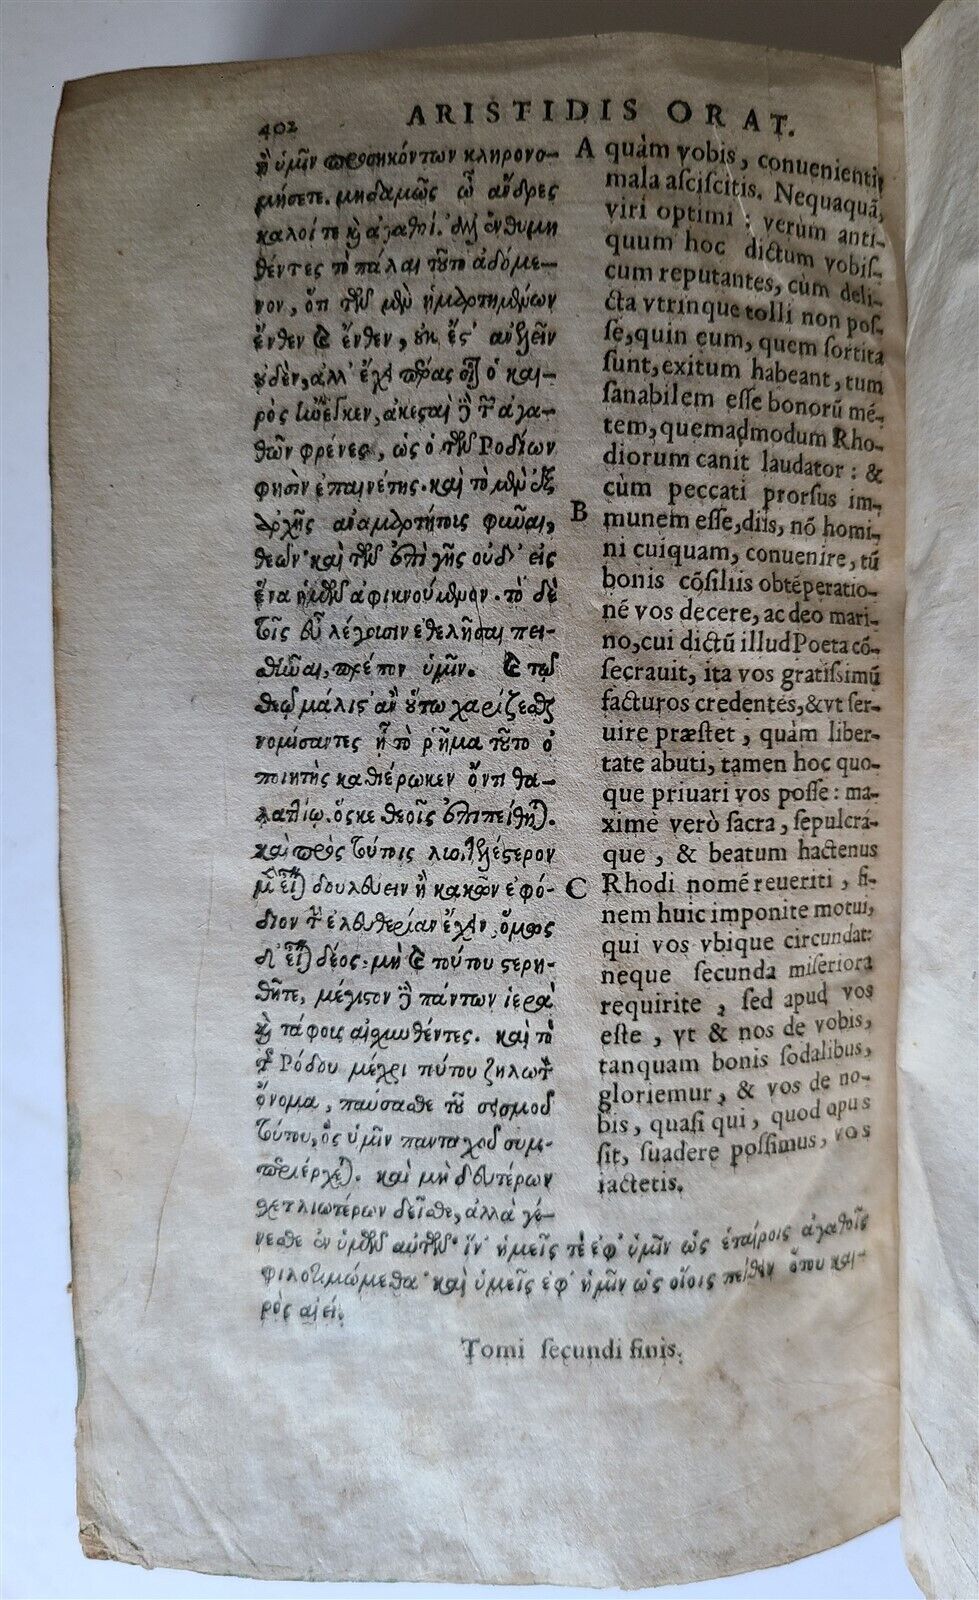 402
ARISTIDIS ORAT.
ἢ ὑμῖν προσηκόντων κληρονο-
μήσετε. μηδαμῶς ὦ ἄνδρες
καλοί τε καὶ ἀγαθοί. ἀλλ' ἐνθυμη
θέντες τὸ πάλαι τοῦτο ᾀδόμε-
νον, ὅτι τῶν μὲν ἡμαρτημένων
ἔνθεν καὶ ἔνθεν, οὐκ ἔστ' ἀνελεῖν
οὐδὲν, ἀλλ' ἔχει πέρας οἷ ὁ και-
ρὸς
ἀκεσταὶ
ἀγα-
θῶν φρένες, ὡς ὁ τῶν Ροδίων
φησὶν ἐπαινέτης. καὶ τὸ μὲν ἐξ
ἀρχῆς ἀναμαρτήτοις φῦναι,
θεῶν· καὶ τῶν ἐπὶ γῆς οὐδ' εἰς
ἕνα ἡμῶν ἀφικνούμενον. τὸ δὲ
τοῖς εὖ λέγουσιν ἐθελῆσαι πεί-
θεσθαι, πρέπον ὑμῖν. καὶ τῷ
θεῷ μάλιστ' ἂν οὕτω χαρίζεσθαι
νομίσαντες ᾧ τὸ ῥῆμα τοῦτο ὁ
ποιητὴς καθιέρωκεν ὄντι θα-
λαττίῳ. ὅς κε θεοῖς ἐπιπείθηται.
καὶ πρὸς τούτοις λυσιτελέστερον
μὲν εἶναι δουλεύειν ἢ κακῶν ἐφό-
διον τὴν ἐλευθερίαν ἔχειν, ὅμως
δ' εἶναι δέος. μὴ καὶ τούτου στερη-
θῆτε, μέγιστον δὲ πάντων ἱερὰ
καὶ τάφους αἰσχυνθέντες. καὶ τὸ
τῆς Ρόδου μέχρι τούτου ζηλωτὸν
ὄνομα, παύσασθε τοῦ σεισμοῦ
τούτου, ὃς ὑμῖν πανταχοῦ συμ-
περιέρχεται. καὶ μὴ δευτέρων
σχετλιωτέρων δεῖσθε, ἀλλὰ γέ-
νεσθε ἐν ὑμῶν αὐτῶν· ἵν' ἡμεῖς τε ἐφ' ὑμῖν ὡς ἑταίροις ἀγαθοῖς
φιλοτιμώμεθα· καὶ ὑμεῖς ἐφ' ἡμῖν ὡς οἵοις πείθειν ὅτου και-
ρὸς αἰεί.
A quàm vobis, conuenienti
mala asciscitis. Nequaquã,
viri optimi: verùm anti-
quum hoc dictum vobis-
cum reputantes, cùm deli-
cta vtrinque tolli non pos-
se, quin eum, quem sortita
sunt, exitum habeant, tum
sanabilem esse bonorũ mẽ-
tem, quemadmodum Rho-
diorum canit laudator: &
cùm peccati prorsus im-
B munem esse, diis, nõ homi-
ni cuiquam, conuenire, tũ
bonis cõsiliis obtẽperatio-
nẽ vos decere, ac deo mari-
no, cui dictũ illud Poeta cõ-
secrauit, ita vos gratissimũ
facturos credentes, & vt ser-
uire præstet, quàm liber-
tate abuti, tamen hoc quo-
que priuari vos posse: ma-
ximè verò sacra, sepulcrá-
que, & beatum hactenus
C Rhodi nomẽ reueriti, fi-
nem huic imponite motui,
qui vos vbique circundat:
neque secunda miseriora
requirite, sed apud vos
este, vt & nos de vobis,
tanquam bonis sodalibus,
gloriemur, & vos de no-
bis, quasi qui, quod opus
sit, suadere possimus, vos
iactetis.
Tomi secundi finis.